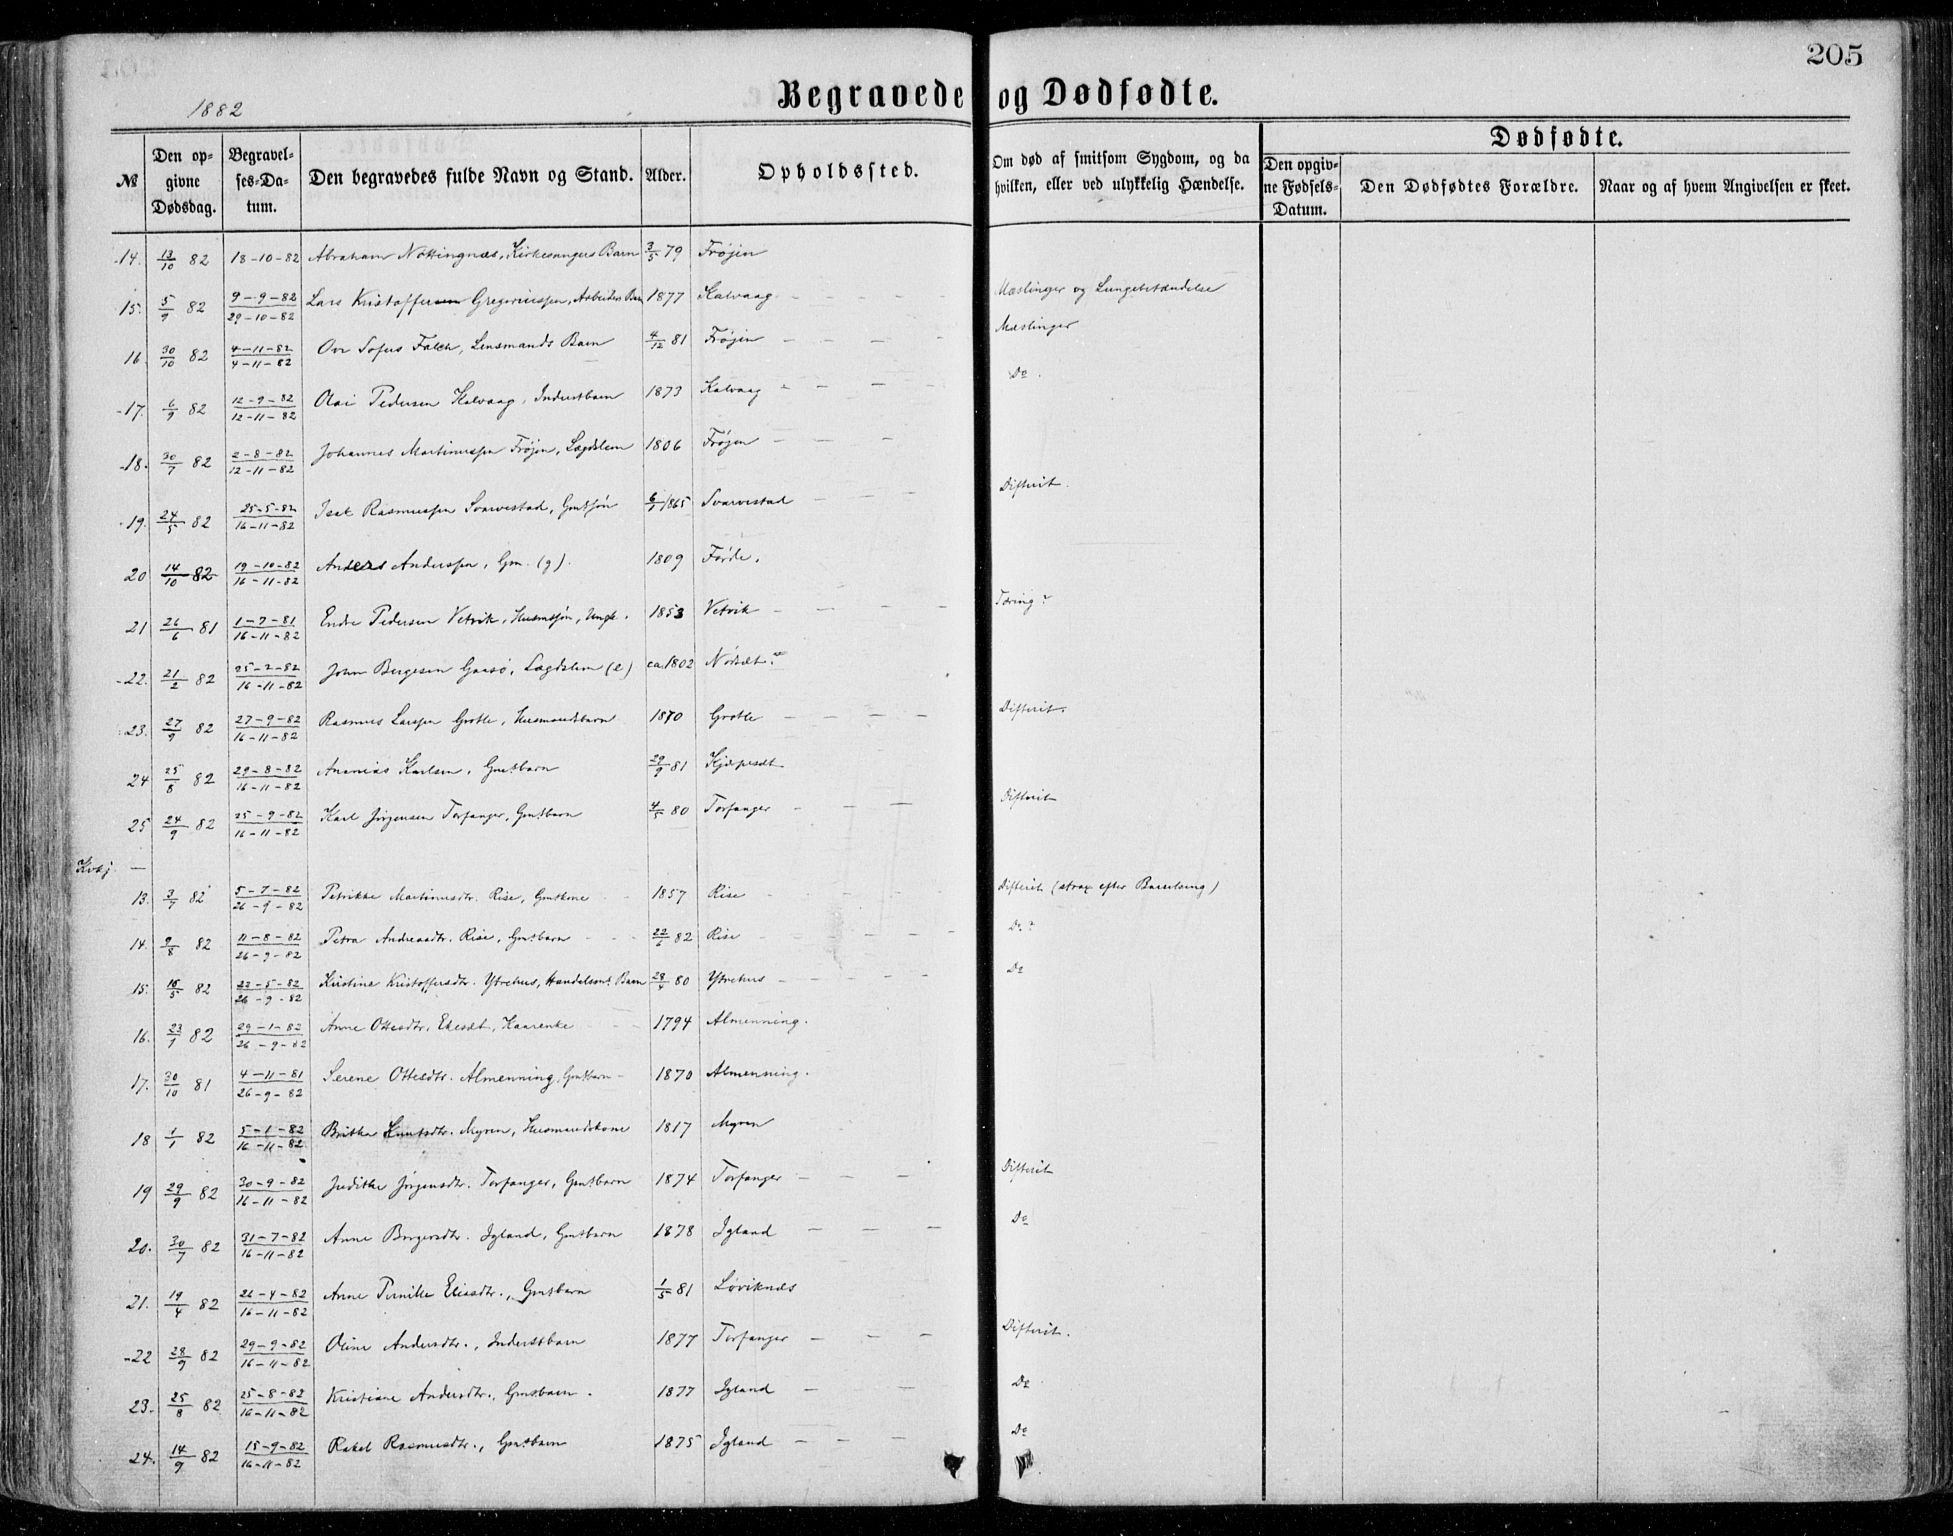 205
1882
Begravede og Dødfødte.
Dødfødte.
№ Den op-givne Dødsdag. Begravel-ses-Da-tum. Den begravedes fulde Navn og Stand. Alder. Opholdssted. Om død af smitsom Sygdom, og da hvilken, eller ved ulykkelig Hændelse. Den opgiv-ne Fødsels-Datum. Den Dødfødtes Forældre. Naar og af hvem Angivelsen er skeet.
14. 13/10 82 18-10-82 Abraham Nøttingnæs, Kirkesangers Barn 3/5 79 Frøjen
15. 5/9 82 9-9-82 29-10-82 Lars Kristoffer Gregoriussen, Arbeiders Barn 1877 Kalvaag Mæslinger og Lungebetændelse
16. 30/10 82 4-11-82 4-11-82 Ove Sofus Falch, Lensmands Barn 4/12 81 Frøjen Mæslinger
17. 6/9 82 12-9-82 12-11-82 Olai Pedersen Kalvaag, Inderstbarn 1873 Kalvaag Do.
18. 30/7 82 2-8-82 12-11-82 Johannes Martinussen Frøjen, Lægdslem 1806 Frøjen
19. 24/5 82 25-5-82 16-11-82 Isak Rasmussen Svarvestad, Gmdsøn 6/1 1865 Svarvestad Difterit.
20 14/10 82 19-10-82 16-11-82 Anders Anderssen, Gm. (g). 1809 Førde.
21 26/6 81 1-7-81 16-11-82 Endre Pedersen Vetvik, Husmdsøn, Ungk. 1853 Vetvik Tæring?
22. 21/2 82 25-2-82 16-11-82 John Børgesen Gaasø, Lægdslem (e) ca. 1802 Nødset?
23. 27/9 82 27-9-82 16-11-82 Rasmus Larssen Grotle, Husmandsbarn 1870 Grotle Difterit.
24 25/8 82 29-8-82 16-11-82 Ananias Karlsen, Gmdbarn 29/9 81 Kjøpesæt
25 24/9 82 25-9-82 16-11-82 Karl Jørgensen Torfanger, Gmdbarn 4/5 80 Torfanger Difterit
Kvkj.
13. 3/7 82 5-7-82 26-9-82 Petrikke Martinusdtr. Rise, Gmdkone 1857 Rise Difterit (strax efter Barselseng)
14. 9/8 82 11-8-82 26-9-82 Petra Andreasdtr. Rise, Gmdbarn 22/6 82 Rise Do.?
15. 18/5 82 22-5-82 26-9-82 Kristine Kristoffersdtr. Ytrehus, Handelsm. Barn 28/4 80 Ytrehus Do
16. 23/1 82 29-1-82 26-9-82 Anne Ottesdtr. Ekesæt, Kaarenke 1794 Almenning.
17. 30/10 81 4-11-81 26-9-82 Serene Ottesdtr. Almenning, Gmdbarn 1870 Almenning.
18 1/1 82 5-1-82 16-11-82 Brithe Knutsdtr. Myren, Husmandskone 1817 Myren
19 29/9 82 30-9-82 16-11-82 Judithe Jørgensdtr. Torfanger, Gmdbarn 1874 Torfanger Difterit
20. 30/7 82 31-7-82 16-11-82 Anne Børgersdtr. Igland, Gmdbarn 1878 Igland Do
21. 19/4 82 26-4-82 16-11-82 Anne Pernille Eliasdtr., Gmdbarn 1/5 81 Løviknæs
22 28/9 82 29-9-82 16-11-82 Oline Andersdtr., Inderstbarn 1877 Torfanger Difterit.
23. 25/8 82 25-8-82 16-11-82 Kristiane Andersdtr., Gmdbarn. 1877 Igland Do
24. 14/9 82 15-9-82 16-11-82 Rakel Rasmusdtr., Gmdbarn 1875 Igland Do